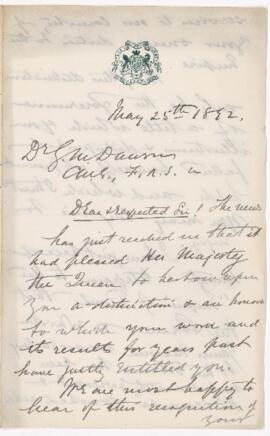 May 25th 1892.
Dr G. M. Dawson
C.M.G., F.R.S. &c
Dear & respected Sir! The news
has just reached us that it
had pleased Her Majesty
the Queen to bestow upon
you a distinction & an honor
to which your work and
its results for years past
have justly entitled you.
We are most happy to
hear of this recognition of
your